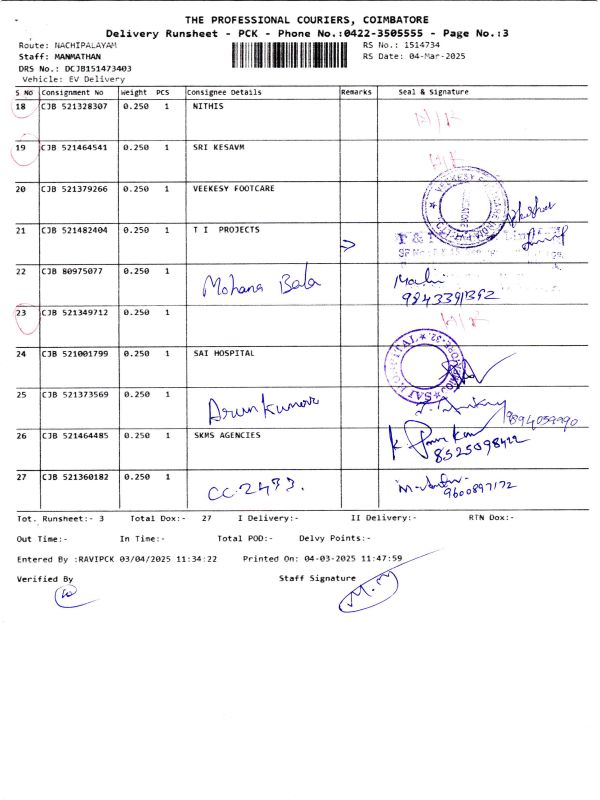 THE PROFESSIONAL COURIERS, COIMBATORE
Delivery Runsheet - PCK - Phone No.:0422-3505555 - Page No.:3
Route: NACHIPALAYAM RS No.: 1514734
Staff: MANMATHAN RS Date: 04-Mar-2025
DRS No.: DCJB151473403
Vehicle: EV Delivery
S No Consignment No Weight PCS Consignee Details Remarks Seal & Signature
18 CJB 521328307 0.250 1 NITHIS
19 CJB 521464541 0.250 1 SRI KESAVM
20 CJB 521379266 0.250 1 VEEKESY FOOTCARE
21 CJB 521482404 0.250 1 T I PROJECTS
22 CJB 80975077 0.250 1 Mohana Bala
9843391392
23 CJB 521349712 0.250 1
24 CJB 521001799 0.250 1 SAI HOSPITAL
25 CJB 521373569 0.250 1 Arun Kumar
9894059990
26 CJB 521464485 0.250 1 SKMS AGENCIES
8525098422
27 CJB 521360182 0.250 1 CC. 2433.
9600897172
Tot. Runsheet:- 3 Total Dox:- 27 I Delivery:- II Delivery:- RTN Dox:-
Out Time:- In Time:- Total POD:- Delvy Points:-
Entered By :RAVIPCK 03/04/2025 11:34:22 Printed On: 04-03-2025 11:47:59
Verified By Staff Signature